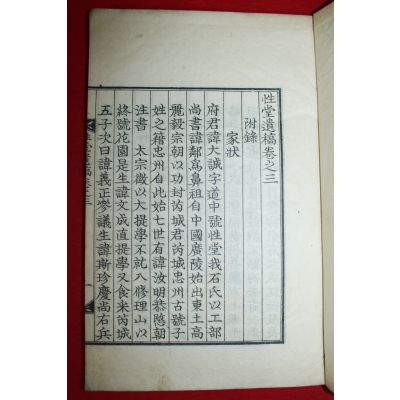 性堂遺稿卷之三
附錄
家狀
府君諱大誠字道中號性堂我石氏以工部
尚書諱鄰爲鼻祖自中國廣陵始出東土高
麗毅宗朝以功封芮城君芮城忠州古號子
姓之籍忠州自此始七世有諱汝明恭愍朝
注書 太宗徵以大提學不就入修理山以
終號花園是生諱文成直提學又食采芮城
五子次曰諱義正參議生諱斯珍慶尚右兵